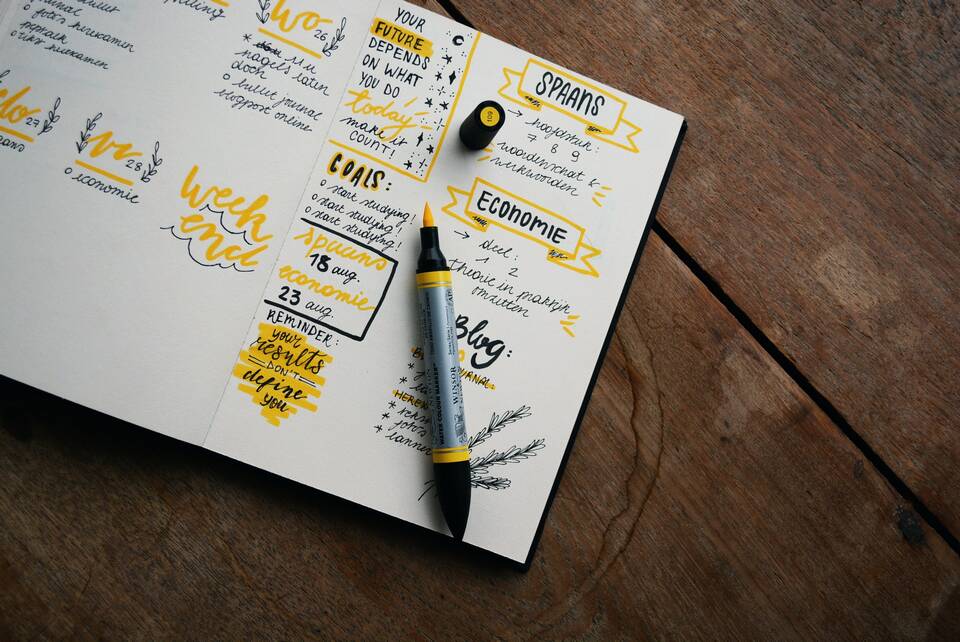 journal
o foto's bewerken
opmaak
o tks bewerken
do 27
wo 26
* nagels laten
doen
o bullet journal
blogpost online
vr 28
o economie
week
end
YOUR
FUTURE
DEPENDS
ON WHAT
YOU DO
today
make it
COUNT!
GOALS:
o start studying!
o start studying!
o start studying!
spaans
18 aug.
economie
23 aug.
REMINDER:
your
results
DON'T
define
you
SPAANS
→ hoofdstuk:
7 8 9
woordenschat &
werkwoorden
ECONOMIE
→ deel:
1 2
theorie in praktijk
omzetten
Blog:
109
WATER COLOUR MARKER
WINSOR